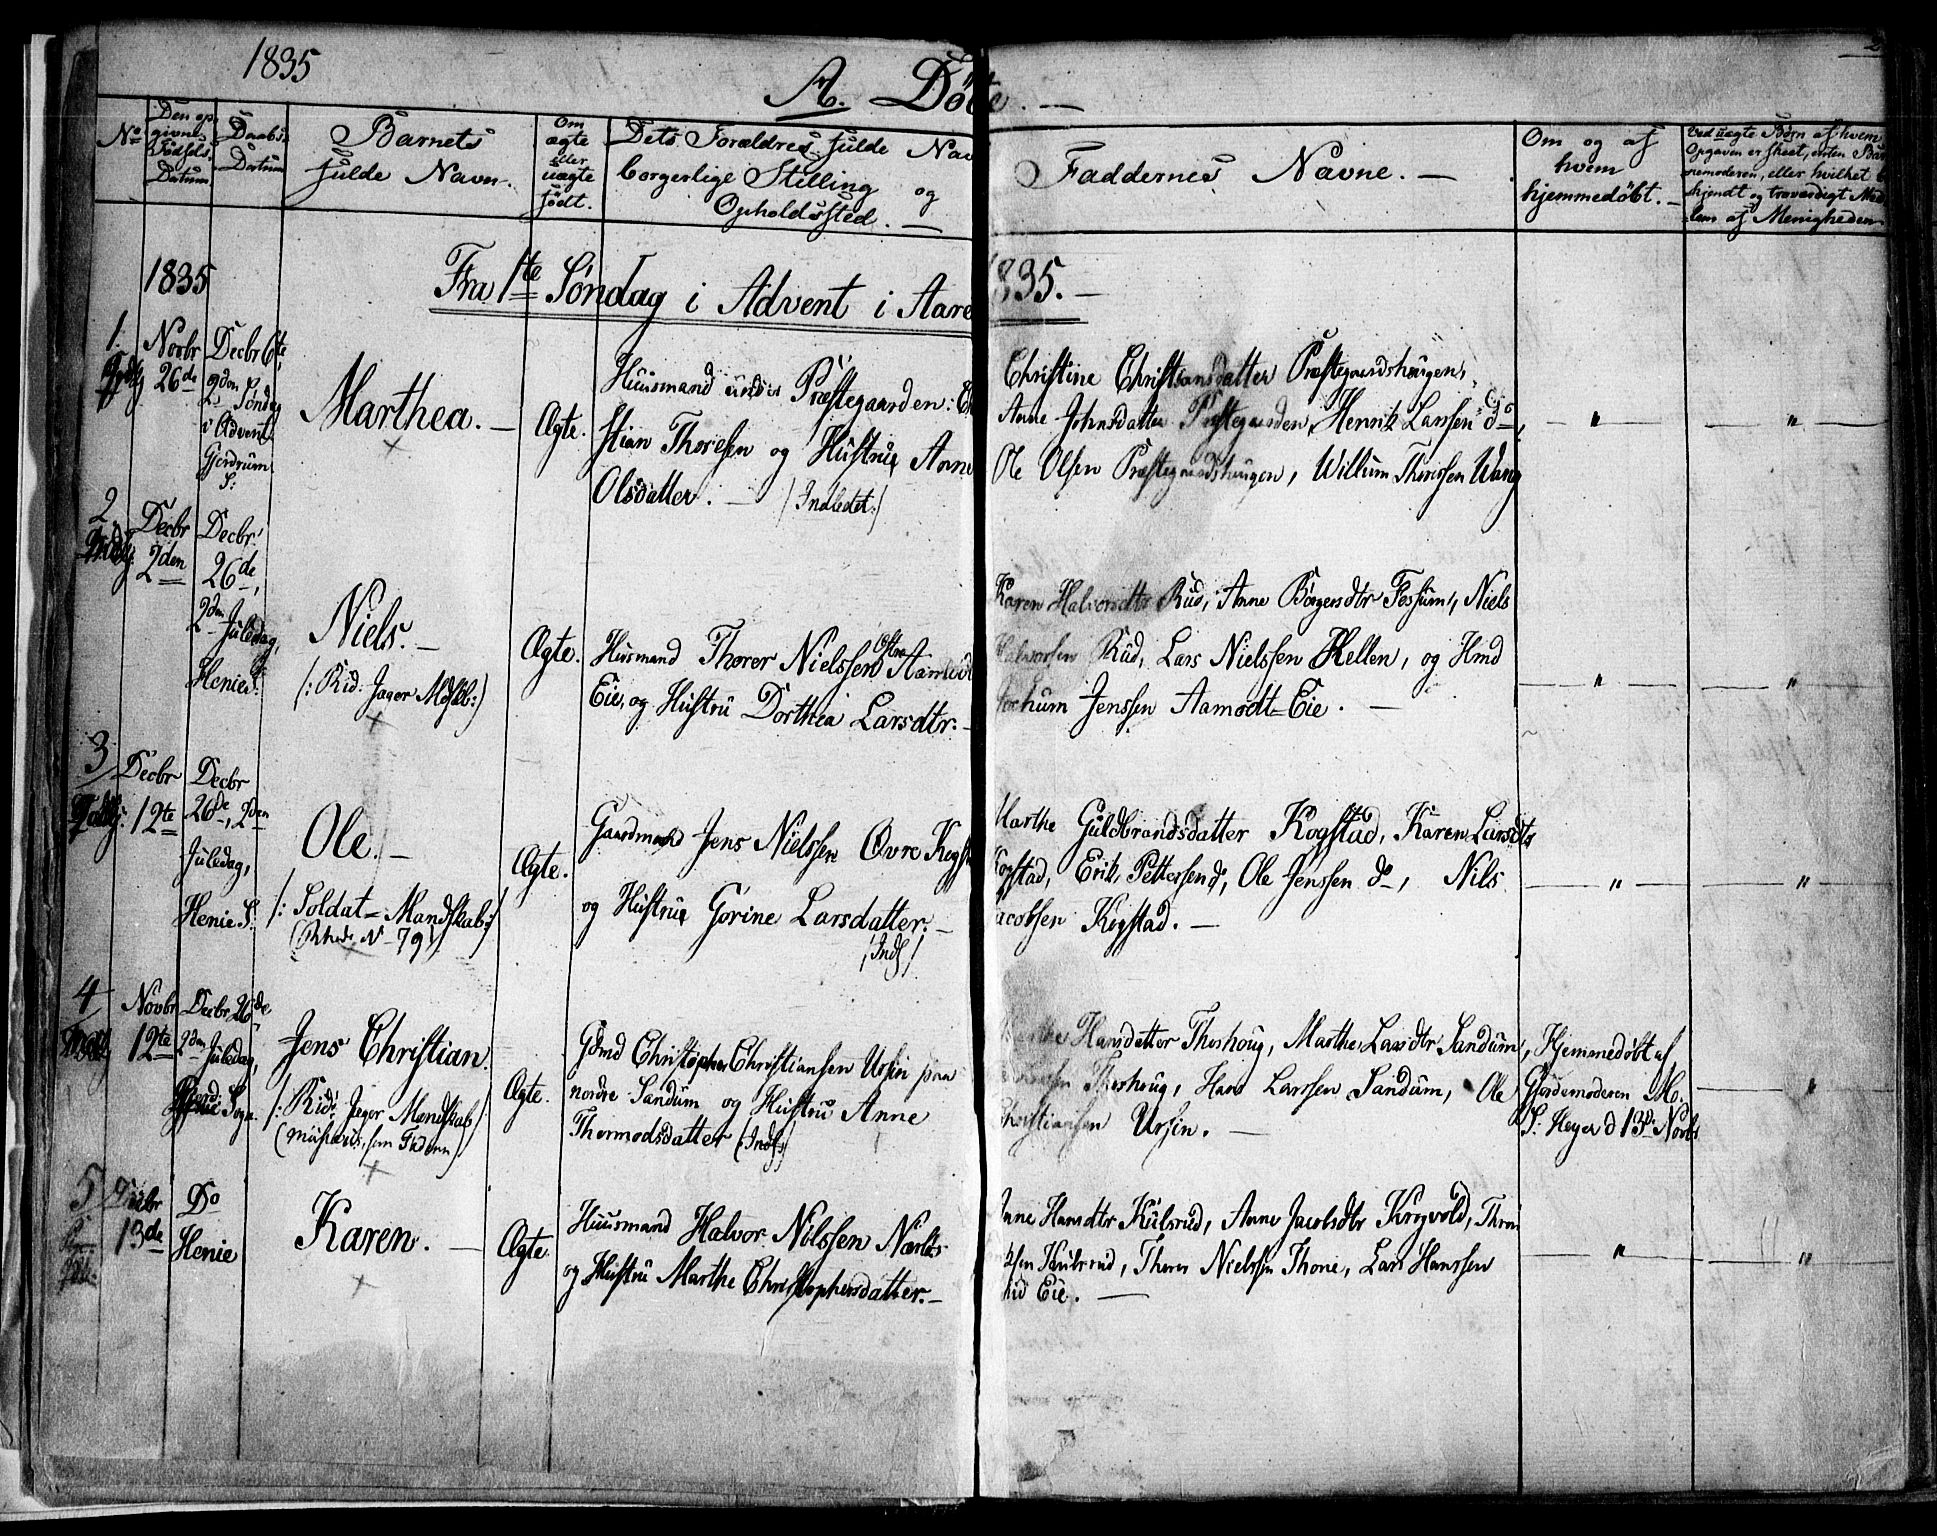 1835
A. Døbte. —
No
Den opgivne Fødsels Datum
Daabs Datum
Barnets fulde Navn. —
Om ægte eller uægte født.
Dets Forældres fulde Navne borgerlige Stilling og Opholdssted. —
Faddernes Navne. —
Om og af hvem hjemmedøbt. —
Ved uægte Børn af hvem
Opgaven er skeet, enten Bar
nemoderen, eller hvilket
kjendt og troværdigt Med
lem af Menigheden
1835
Fra 1te Søndag i Advent i Aaret 1835. —
1.
Novbr 26de
Decbr 6te, 2den Søndag i Advent. Gjerdrum S:
Marthea. —
Ægte.
Huusmand under Præstegaarden: Chri
stian Thoresen og Hustrue Anne
Olsdatter. — /Indledet:/
Christine Christiansdatter Præstegaardshaugen,
Anne Johnsdatter Præstegaarden, Henrik Larssen do,
Ole Olsen Præstegaardshaugen, Willum Thoressen Wang
— " —
"
2
Decbr 2den
Decbr. 26de, 2den Juledag, Henie S:
Niels. —
(: Rid: Jager Mdskb:)
Ægte.
Huusmand Thorer Nielssen Østre Aamodt
Eie, og Hustru Dorthea Larsdtr. —
Karen Halvorsdtr Rud, Anne Børgersdtr Fossum, Niels
Halvorsen Rud, Lars Nielssen Kellen, og Hmd
Jochum Jenssen Aamodt-Eie. —
— " —
— " —
3
Decbr 12te
Decbr 26de, 2den Juledag, Henie S:
Ole. —
/: Soldat-Mandskab:/
Ægte.
Gaardmand Jens Nielssen Øvre Kogst
og Hustrue Gørine Larsdatter. —
/Indl/
Marthe Guldbrandsdatter Kogstad, Karen Larsdtr
Kogstad, Erik Pettersen do, Ole Jenssen do, Nils
Jacobsen Kogstad. —
— " —
— " —
4
Novbr 12te
Decbr 26de 2den Juledag, Sogn
Jens Christian.
/: Rid: Jager Mandskab/
Ægte.
Gdmd Christopher Christiansen Ursin paa
nordre Sandum og Hustru Anne
Thormodsdatter (Indl:)
Hansdatter Thoshoug, Marthe Larsdtr Sandum,
Thoshoug, Hans Larssen Sandum, Ole
Christiansen Ursin. —
Hjemmedøbt af
Gjordemoderen M.
S. Heyer d 13de Novbr
— "
5
13de
Do Henie
Karen. —
Ægte.
Huusmand Halvor Nilssen
og Hustru Marthe Christophersdatter. —
Anne Hansdtr Kulsrud, Anne Jacobsdtr Krogvold,
Kulsrud, Thorer Nielssen Thone, Lars Hanssen
Eie. —
— " —
"